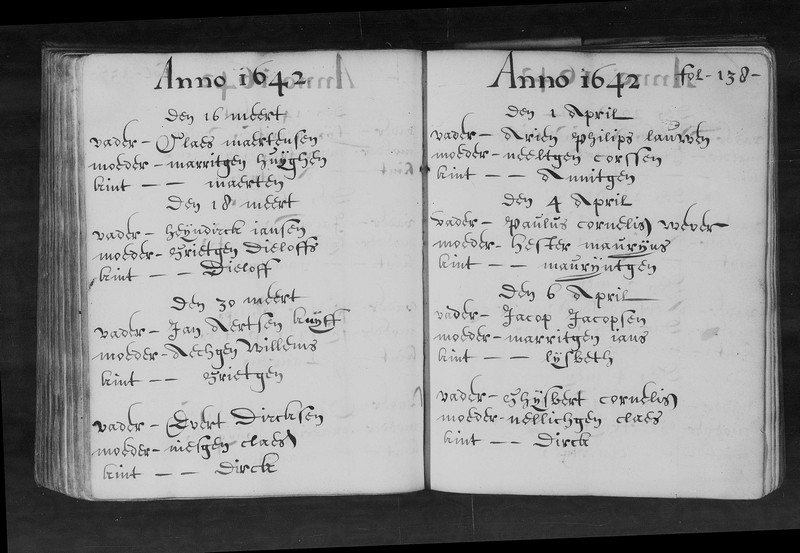 Anno 1642
Den 16 meert
vader - Claes maertensen
moeder - marritgen huijghen
kint - - maerten
Den 18 meert
vader - heijndirck iansen
moeder - Grietgen Dieloffs
kint - - Dieloff
Den 30 meert
vader - Jan Aertsen kuijff
moeder - Aechgen Willems
kint - - Grietgen
vader - Evert Dircksen
moeder - niesgen claes
kint - - Dirck
Anno 1642 fol - 138 -
Den 1 April
vader - Arien Philips
moeder - neeltgen corssen
kint - - Annitgen
Den 4 April
vader - Paulus cornelis wever
moeder - hester maurijns
kint - - maurijntgen
Den 6 April
vader - Jacop Jacopsen
moeder - marritgen ians
kint - - lijsbeth
vader - Ghijsbert cornelis
moeder - nellichgen claes
kint - - Dirck